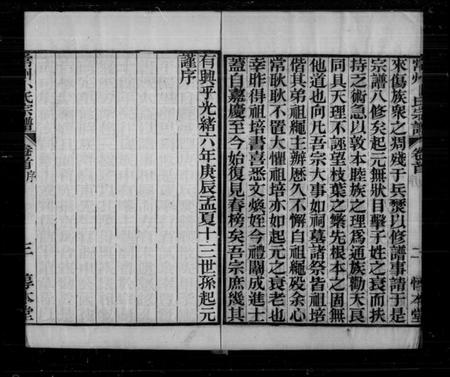 來傷族衆之凋殘于兵燹以修譜事請于是
宗譜八修矣起元無狀目擊子姓之衰而扶
持之術急以敦本睦族之理爲通族勸天良
同具天理不誣望枝葉之繁先根本之固無
他道也向凡吾宗大事如祠墓諸祭皆祖培
偕其弟祖繩主辦歷久不懈自祖繩歿余心
常耿耿不置大懼祖培亦如起元之衰老也
幸昨得祖培書喜悉文煥姪今禮闈成進士
蓋自嘉慶至今始復見春榜矣吾宗庶幾其
有興乎光緒六年庚辰孟夏十三世孫起元
謹序
常州卜氏宗譜
卷首
二
惇本堂
常州卜氏宗譜
卷首序
三
惇本堂